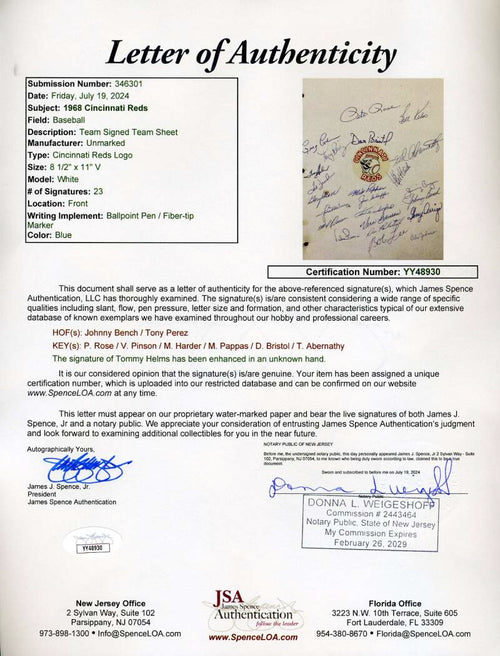 Letter of Authenticity
Submission Number: 346301
Date: Friday, July 19, 2024
Subject: 1968 Cincinnati Reds
Field: Baseball
Description: Team Signed Team Sheet
Manufacturer: Unmarked
Type: Cincinnati Reds Logo
Size: 8 1/2" x 11" V
Model: White
# of Signatures: 23
Location: Front
Writing Implement: Ballpoint Pen / Fiber-tip
Marker
Color: Blue
Pete Rose
Dave Bristol
CINCINNATI
REDS
Bob Lee
Certification Number: YY48930
This document shall serve as a letter of authenticity for the above-referenced signature(s), which James Spence
Authentication, LLC has thoroughly examined. The signature(s) is/are consistent considering a wide range of specific
qualities including slant, flow, pen pressure, letter size and formation, and other characteristics typical of our extensive
database of known exemplars we have examined throughout our hobby and professional careers.
HOF(s): Johnny Bench / Tony Perez
KEY(s): P. Rose / V. Pinson / M. Harder / M. Pappas / D. Bristol / T. Abernathy
The signature of Tommy Helms has been enhanced in an unknown hand.
It is our considered opinion that the signature(s) is/are genuine. Your item has been assigned a unique
certification number, which is uploaded into our restricted database and can be confirmed on our website
www.SpenceLOA.com at any time.
This letter must appear on our proprietary water-marked paper and bear the live signatures of both James J.
Spence, Jr and a notary public. We appreciate your consideration of entrusting James Spence Authentication's judgment
and look forward to examining additional collectibles for you in the near future.
Autographically Yours,
James J. Spence, Jr.
President
James Spence Authentication
YY48930
NOTARY PUBLIC OF NEW JERSEY
Before me, the undersigned notary public, this day personally appeared James J. Spence, Jr 2 Sylvan Way - Suite
102, Parsippany, NJ 07054, to me known who being duly sworn according to law, claimed this to be a true
document.
Sworn and subscribed to before me on July 19, 2024
Notary Public
DONNA L. WEIGESHOFF
Commission # 2443464
Notary Public, State of New Jersey
My Commission Expires
February 26, 2029
New Jersey Office
2 Sylvan Way, Suite 102
Parsippany, NJ 07054
973-898-1300 • Info@SpenceLOA.com
JSA
James Spence
Authentication
follow the leader
www.SpenceLOA.com
Florida Office
3223 N.W. 10th Terrace, Suite 605
Fort Lauderdale, FL 33309
954-380-8670 • Florida@SpenceLOA.com